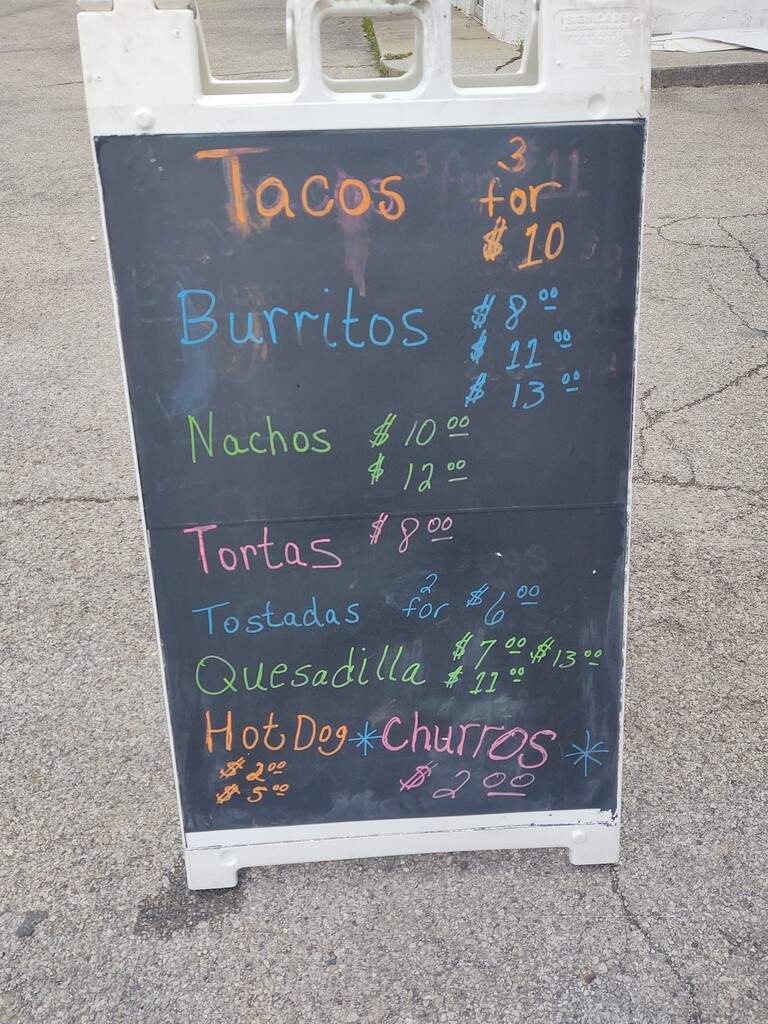 SIGNICADE
Tacos 3 for $10
Burritos $8.00
$11.00
$13.00
Nachos $10.00
$12.00
Tortas $8.00
Tostadas 2 for $6.00
Quesadilla $7.00 $13.00
$11.00
Hot Dog * Churros *
$2.00 $2.00
$5.00